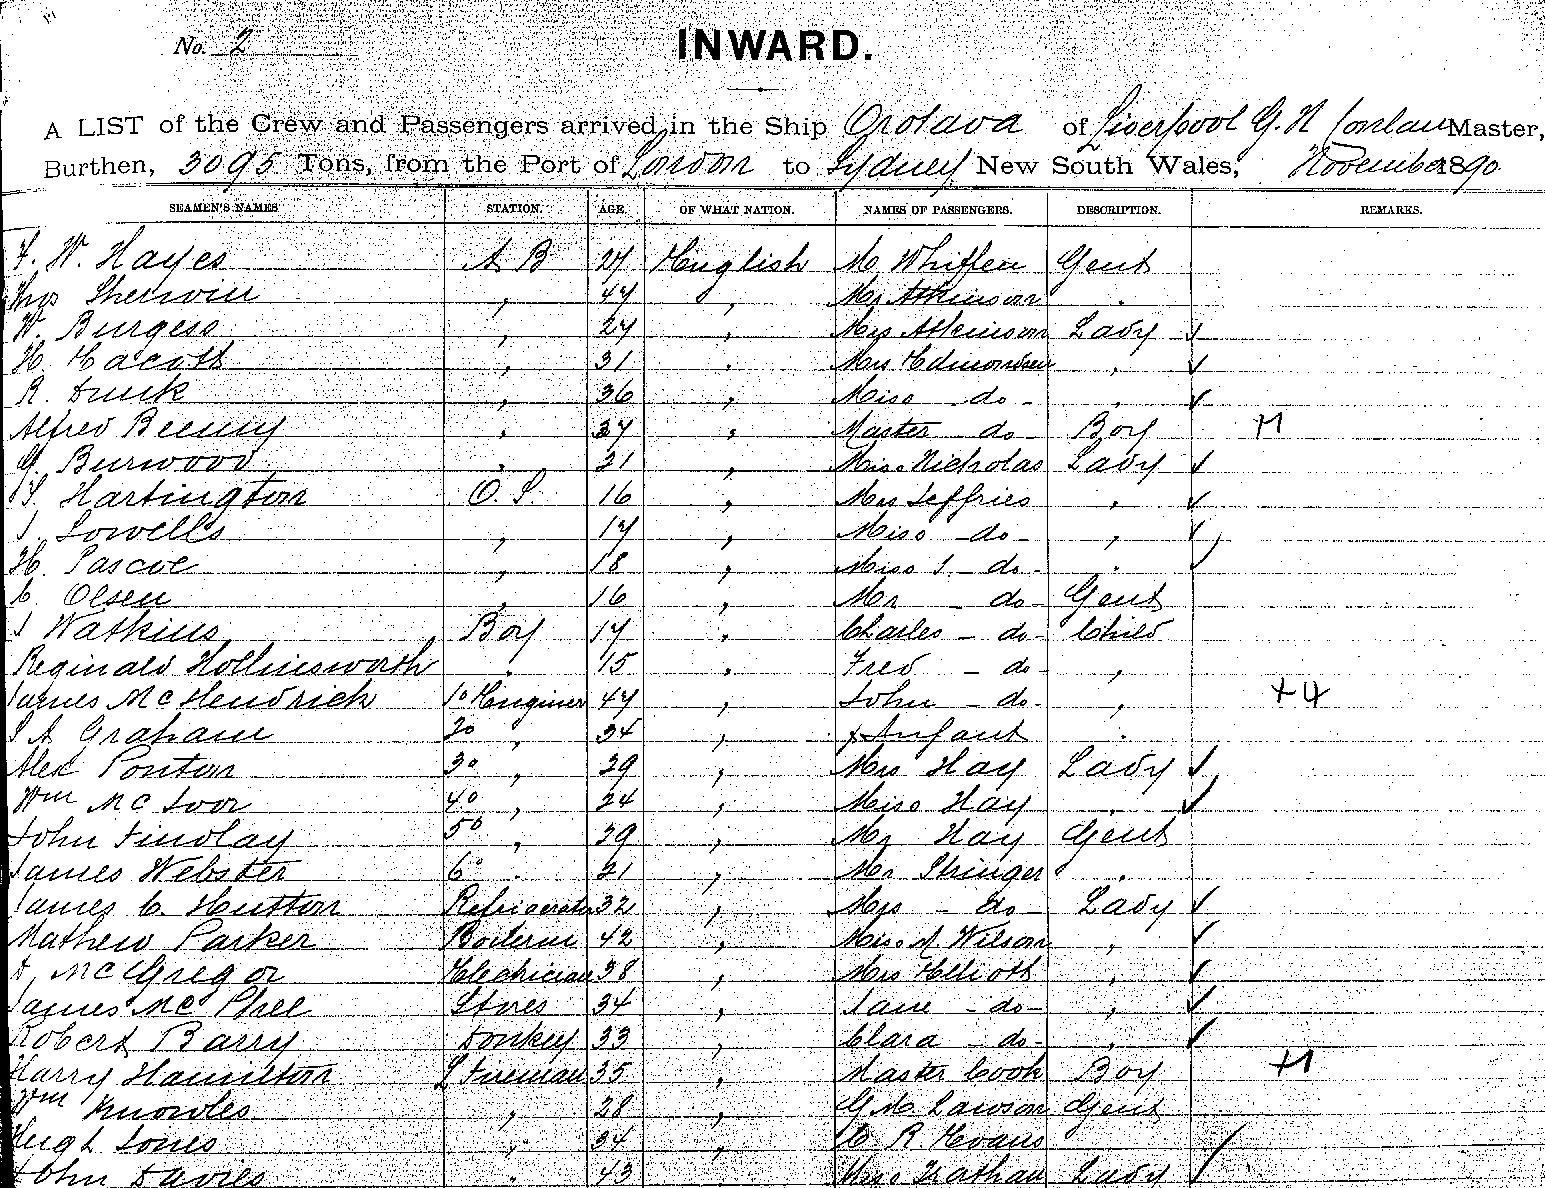 No. 2
INWARD.
A LIST of the Crew and Passengers arrived in the Ship Orotava of Liverpool G. N Master,
Burthen, 3095 Tons, from the Port of London to Sydney New South Wales, November 1890
SEAMEN'S NAMES STATION. AGE. OF WHAT NATION. NAMES OF PASSENGERS. DESCRIPTION. REMARKS.
F. W. Hayes A B 27 English Mr Whiffen Gent
Thos Sherwin " 47 " Mr Atkinson "
W. Burgess " 27 " Mrs Atkinson Lady ✓
H. Eacott " 31 " Mrs Edmondson " ✓
R. Dunk " 36 " Miss - do - " ✓
Alfred Beeny " 37 " Master - do - Boy +1
G. Burwood " 21 " Miss Nicholas Lady ✓
Hartington O. S. 16 " Mrs Jeffries " ✓
J. Lowells " 17 " Miss - do - " ✓
H. Pascoe " 18 " Miss J. - do - " ✓
C. Olsen " 16 " Mr - do - Gent
J Watkins Boy 17 " Charles - do - Child
Reginald Hollinsworth " 15 " Fred - do - "
James McKendrick 1° Enginer 47 " John - do - " +4
J A Graham 2° " 34 " + Infant "
Alex Ponton 3° " 29 " Mrs Hay Lady ✓
Wm Mc Ivor 4° " 24 " Miss Hay " ✓
John Findlay 5° " 29 " Mr Hay Gent
James Webster 6° " 21 " Mr Stringer "
James C. Hutton Refrigerator 32 " Mrs - do - Lady ✓
Mathew Parker 42 " Miss A. Wilson " ✓
D. McGregor Elechician 38 " Mrs Elliott " ✓
James Mc Phee Stores 34 " Jane - do - " ✓
Robert Barry Donkey 33 " Clara - do - " ✓
Harry Hamilton L Fireman 35 " Master Cook Boy +1
Wm Knowles " 28 " G. M. Lawson Gent
Hugh Jones " 34 " C R Evans ✓
John Davies " 43 Miss Nathan Lady ✓